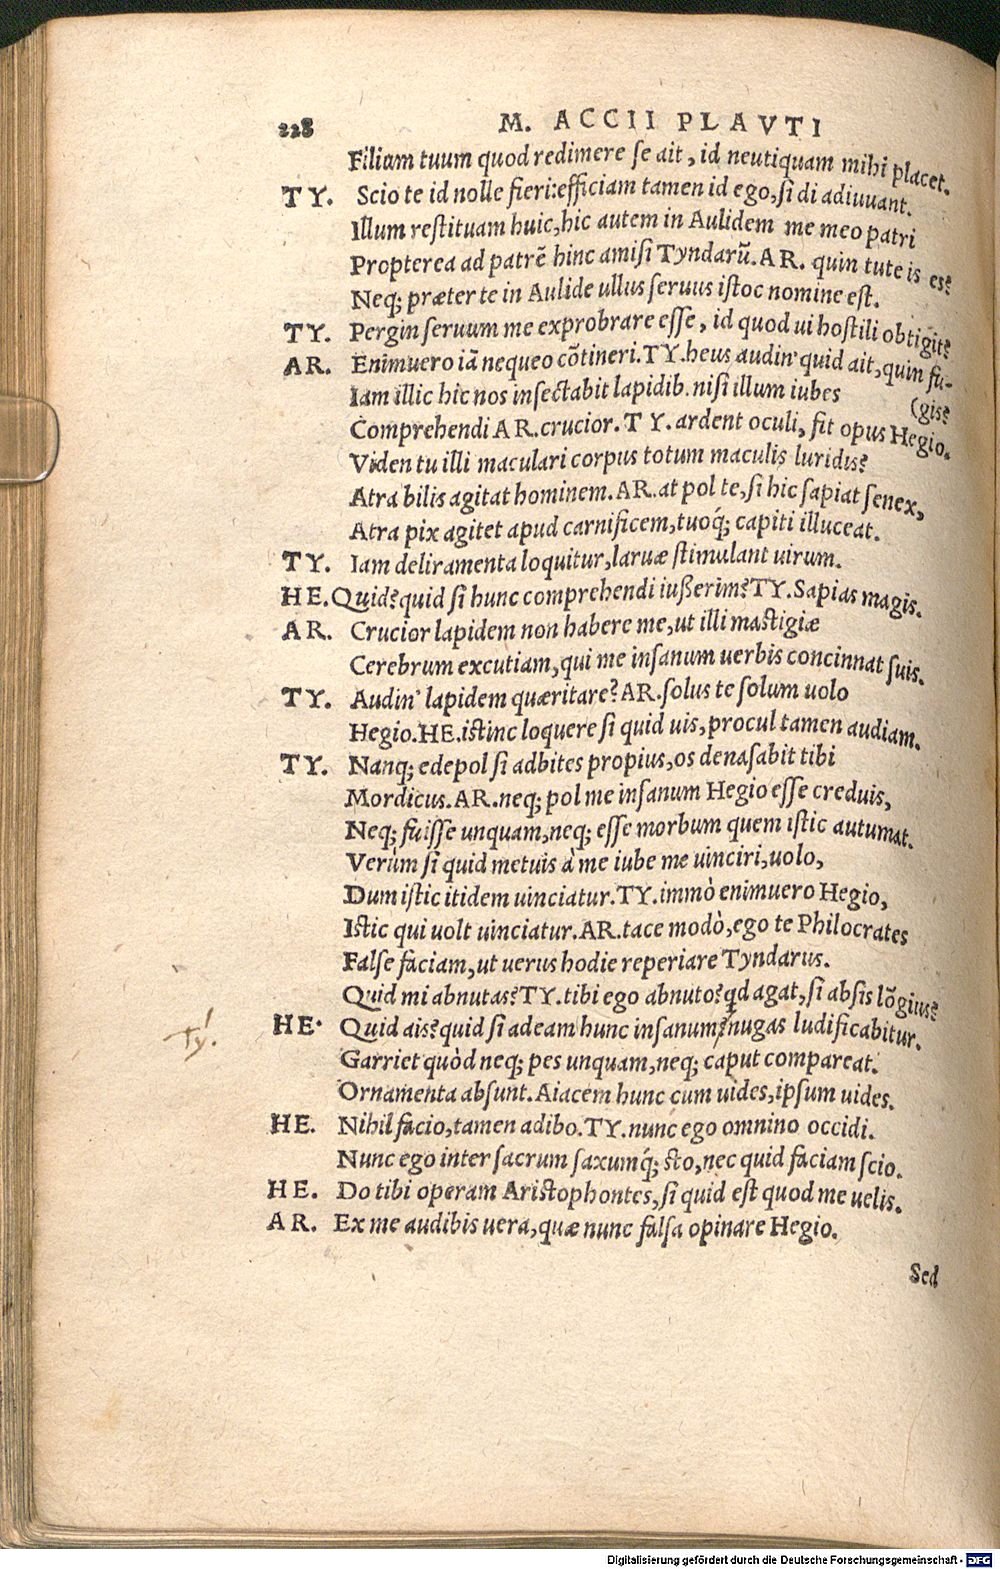 228 M. ACCII PLAVTI
Filium tuum quod redimere se ait, id neutiquam mihi placet.
TY. Scio te id nolle fieri:efficiam tamen id ego, si di adiuuant.
Illum restituam huic, hic autem in Aulidem me meo patri
Propterea ad patrẽ hinc amisi Tyndarũ. AR. quin tute is es?
Neq; præter te in Aulide ullus seruus istoc nomine est.
TY. Pergin seruum me exprobrare esse, id quod ui hostili obtigit?
AR. Enimuero iã nequeo cõtineri. TY. heus audin' quid ait, quin fu-
Iam illic hic nos insectabit lapidib. nisi illum iubes (gis?
Comprehendi AR. crucior. TY. ardent oculi, fit opus Hegio.
Viden tu illi maculari corpus totum maculis luridis?
Atra bilis agitat hominem. AR. at pol te, si hic sapiat senex,
Atra pix agitet apud carnificem, tuoq́; capiti illuceat.
TY. Iam deliramenta loquitur, laruæ stimulant uirum.
HE. Quid? quid si hunc comprehendi iußerim? TY. Sapias magis.
AR. Crucior lapidem non habere me, ut illi mastigiæ
Cerebrum excutiam, qui me insanum uerbis concinnat suis.
TY. Audin' lapidem quæritare? AR. solus te solum uolo
Hegio. HE. istinc loquere si quid uis, procul tamen audiam.
TY. Nanq; edepol si adbites propius, os denasabit tibi
Mordicus. AR. neq; pol me insanum Hegio esse creduis,
Neq; fuisse unquam, neq; esse morbum quem istic autumat.
Verùm si quid metuis à me iube me uinciri, uolo,
Dum istic itidem uinciatur. TY. immò enimuero Hegio,
Istic qui uolt uinciatur. AR. tace modò, ego te Philocrates
False faciam, ut uerus hodie reperiare Tyndarus.
Quid mi abnutas? TY. tibi ego abnuto? qd agat, si absis lõgius?
HE. Quid ais? quid si adeam hunc insanum? nugas ludificabitur.
Ty!
Garriet quòd neq; pes unquam, neq; caput compareat.
Ornamenta absunt. Aiacem hunc cum uides, ipsum uides.
HE. Nihil facio, tamen adibo. TY. nunc ego omnino occidi.
Nunc ego inter sacrum saxumq́; sto, nec quid faciam scio.
HE. Do tibi operam Aristophontes, si quid est quod me uelis.
AR. Ex me audibis uera, quæ nunc falsa opinare Hegio.
Sed
Digitalisierung gefördert durch die Deutsche Forschungsgemeinschaft - DFG